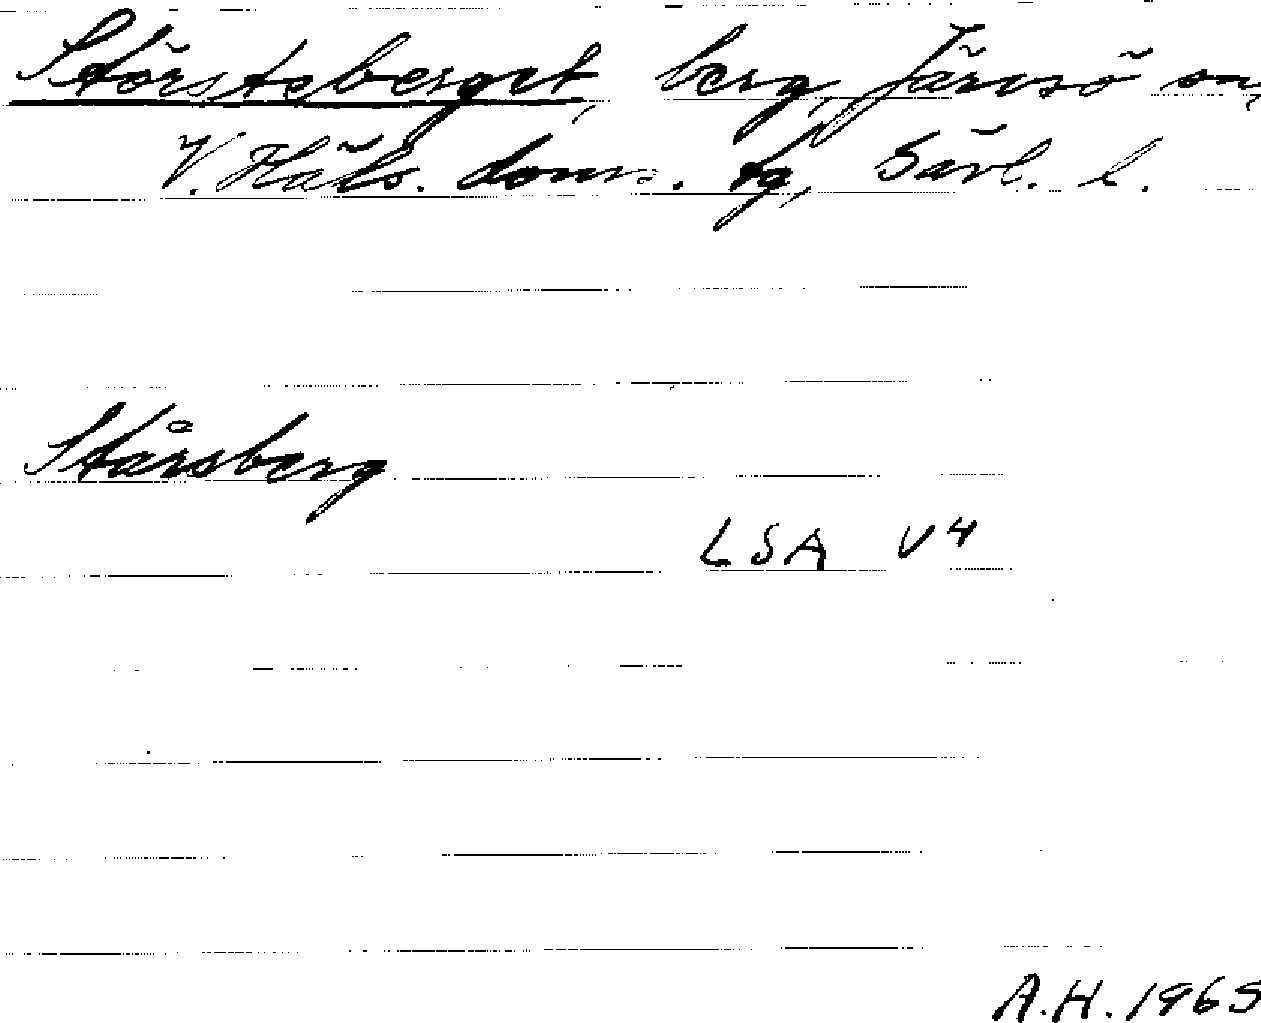 Störsteberget, berg, Järvsö sn,
V. Häls. doms. tg, Gävl. l.
Stårsberg
LSA V4
A.H. 1965